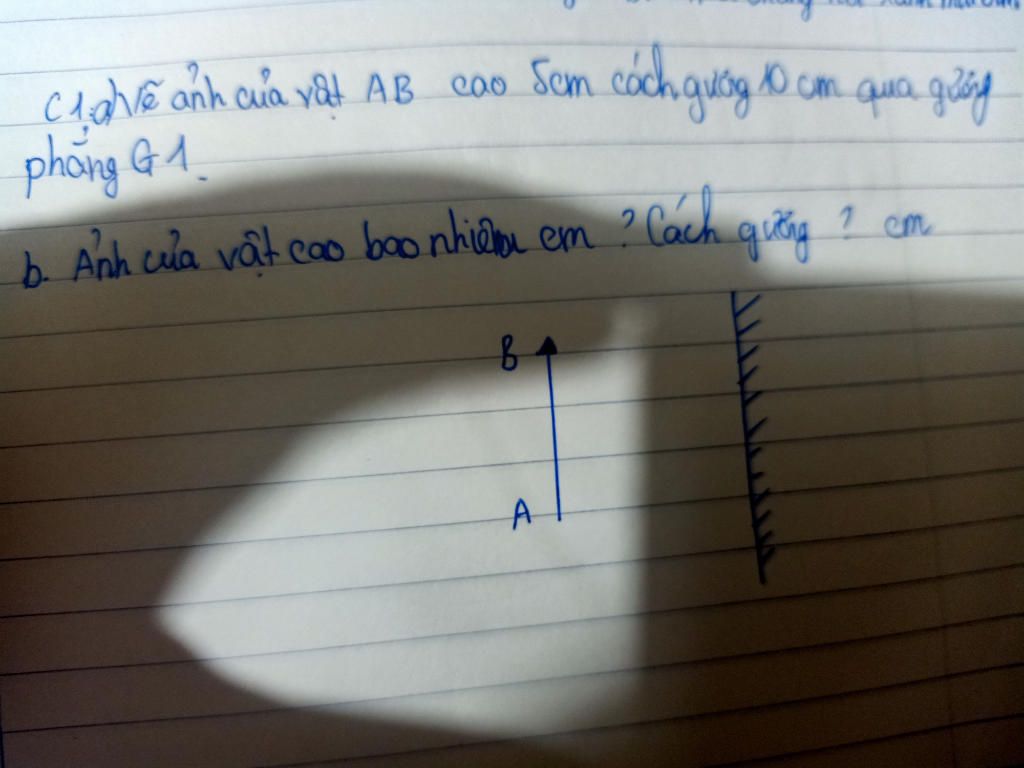 C1.a) Vẽ ảnh của vật AB cao 5cm cách gương 10 cm qua gương
phẳng G1.
b. Ảnh của vật cao bao nhiêu cm ? Cách gương ? cm
B
A